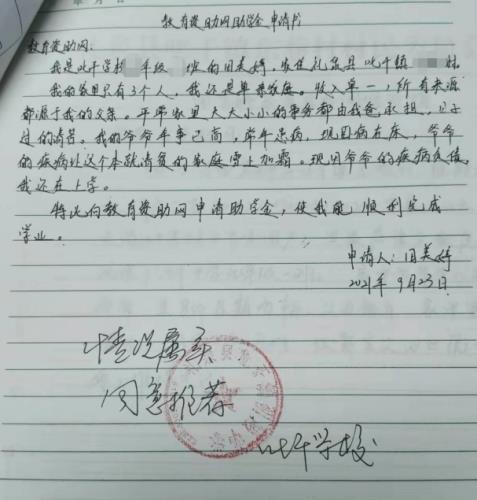 教育资助网助学金申请书
教育资助网:
我是叱干学校 年级 班的闫美婷,家住礼泉县叱干镇
我的家里只有3个人,我还是单亲家庭。收入单一,所有来源
都源于我的父亲。平常家里大大小小的事务都由我爸承担,日子
过的清苦。我的爷爷年事已高,常年患病,现因病在床,爷爷
的疾病让这个本就清贫的家庭雪上加霜。现因爷爷的疾病
我还在上学。
特此向教育资助网申请助学金,使我能顺利完成
学业。
申请人:闫美婷
2021年9月23日
情况属实
同意推荐
叱干学校